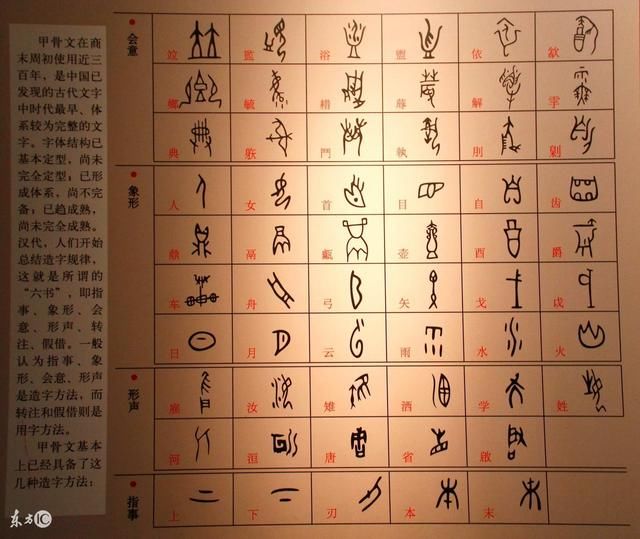 甲骨文在商
末周初使用近三
百年，是中国已
发现的古代文字
中时代最早、体
系较为完整的文
字。字体结构已
基本定型，尚未
完全定型；已形
成体系，尚不完
备；已趋成熟，
尚未完全成熟。
汉代，人们开始
总结造字规律，
这就是所谓的
“六书”，即指
事、象形、会
意、形声、转
注、假借。一般
认为指事、象
形、会意、形声
是造字方法，而
转注和假借则是
用字方法。
甲骨文基本
上已经具备了这
几种造字方法：
会意
竝 監 浴 盥 依 飲
鄉 毓 耤 解
典 鬥 執 刖 劓
象形
人 女 首 目 自 齿
鼎 鬲 甗 壶 酉 爵
车 舟 弓 矢 戈 戉
日 月 云 雨 水 火
形声
汝 雉 酒 学 姓
河 洹 唐 省 啟
指事
上 下 刃 本 末
东方IC